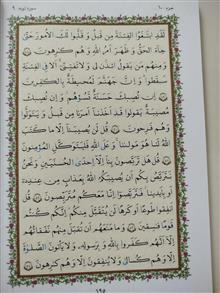 جزء ۱۰ سورة توبه ۹
لَقَدِ ابْتَغَوُا الْفِتْنَةَ مِن قَبْلُ وَقَلَّبُوا لَكَ الْأُمُورَ حَتَّىٰ
جَاءَ الْحَقُّ وَظَهَرَ أَمْرُ اللَّهِ وَهُمْ كَٰرِهُونَ ﴿٤٨﴾
وَمِنْهُم مَّن يَقُولُ ائْذَن لِّي وَلَا تَفْتِنِّي أَلَا فِي الْفِتْنَةِ
سَقَطُوا وَإِنَّ جَهَنَّمَ لَمُحِيطَةٌ بِالْكَٰفِرِينَ
﴿٤٩﴾ إِن تُصِبْكَ حَسَنَةٌ تَسُؤْهُمْ وَإِن تُصِبْكَ
مُصِيبَةٌ يَقُولُوا قَدْ أَخَذْنَا أَمْرَنَا مِن قَبْلُ وَيَتَوَلَّوا
وَّهُمْ فَرِحُونَ ﴿٥٠﴾ قُل لَّن يُصِيبَنَا إِلَّا مَا كَتَبَ
اللَّهُ لَنَا هُوَ مَوْلَىٰنَا وَعَلَى اللَّهِ فَلْيَتَوَكَّلِ الْمُؤْمِنُونَ
﴿٥١﴾ قُلْ هَلْ تَرَبَّصُونَ بِنَا إِلَّا إِحْدَى الْحُسْنَيَيْنِ وَنَحْنُ
نَتَرَبَّصُ بِكُمْ أَن يُصِيبَكُمُ اللَّهُ بِعَذَابٍ مِّنْ عِندِهِ
أَوْ بِأَيْدِينَا فَتَرَبَّصُوا إِنَّا مَعَكُم مُّتَرَبِّصُونَ ﴿٥٢﴾ قُلْ
أَنفِقُوا طَوْعًا أَوْ كَرْهًا لَّن يُتَقَبَّلَ مِنكُمْ إِنَّكُمْ كُنتُمْ
قَوْمًا فَٰسِقِينَ ﴿٥٣﴾ وَمَا مَنَعَهُمْ أَن تُقْبَلَ مِنْهُمْ نَفَقَٰتُهُمْ
إِلَّا أَنَّهُمْ كَفَرُوا بِاللَّهِ وَبِرَسُولِهِ وَلَا يَأْتُونَ الصَّلَوٰةَ
إِلَّا وَهُمْ كُسَالَىٰ وَلَا يُنفِقُونَ إِلَّا وَهُمْ كَٰرِهُونَ ﴿٥٤﴾
١٩٥